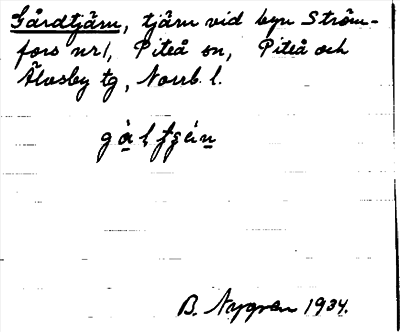 Gårdtjärn, tjärn vid byn Ström-
fors nr 1, Piteå sn, Piteå och
Älvsby tg, Norrb. l.
B. Nygren 1934.